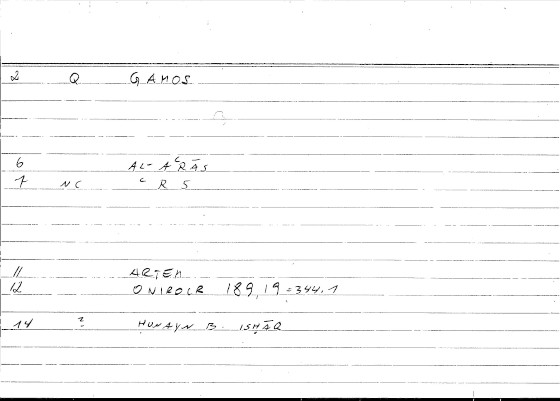 2 Q GAMOS
6 AL-AʿRĀS
7 NC ʿRS
11 ARTEM
12 ONIROCR 189,19=344.1
14 ? ḤUNAYN B. ISḤĀQ